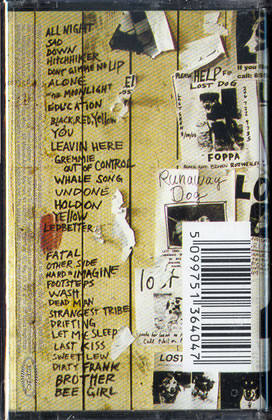 ALL NIGHT
SAD
DOWN
HITCHHIKER
DON'T GIMME NO LIP
ALONE
IN THE MOONLIGHT
EDUCATION
BLACK, RED, YELLOW
YOU
LEAVIN HERE
GREMMIE
OUT OF CONTROL
WHALE SONG
UNDONE
HOLD ON
YELLOW
LEDBETTER
FATAL
OTHER SIDE
HARD to IMAGINE
FOOTSTEPS
WASH
DEAD MAN
STRANGEST TRIBE
DRIFTING
LET ME SLEEP
LAST KISS
SWEET LEW
DIRTY FRANK
BROTHER
BEE GIRL
PLEASE HELP
LOST DOG
FOPPA
If you
call
Runaway
Dog
LO
lost
LOST
5099751364047